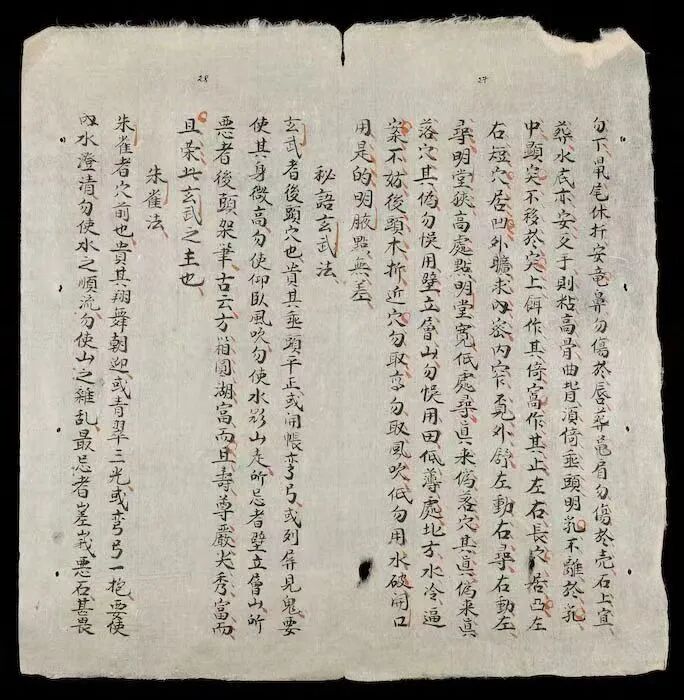 27
勿下鼠尾休折安竜鼻勿傷於唇葬亀眉勿傷於壳石上宜
葬水底亦安叉手則粘高骨曲背須倚垂頭明乳不離於乳
中顕突不移於突上鉗作其倚窩作其止左右長穴居凸左
右短穴居凹外曠求内密内窄覓外舒左動右尋右動左
尋明堂狹高處點明堂寬低處尋真来偽落穴其真偽来真
落穴其偽勿悮用壁立層山勿悮用田低薄處北方水冷逼
案不妨後頭木折近穴勿取高勿取風吹低勿用水破開口
用是的明腋點無差
秘語玄武法
玄武者後頭穴也貴其垂頭平正或開帳弯弓或列屏見鬼要
使其身微高勿使仰臥風吹勿使水影山走所忌者壁立層山所
悪者後頭架筆古云方箱圓湖富而且壽尊嚴尖秀富而
且榮此玄武之主也
28
朱雀法
朱雀者穴前也貴其翔舞朝迎或青翠三光或弯弓一抱要使
内水澄清勿使水之順流勿使山之雜乱最忌者嵯峩悪石甚畏